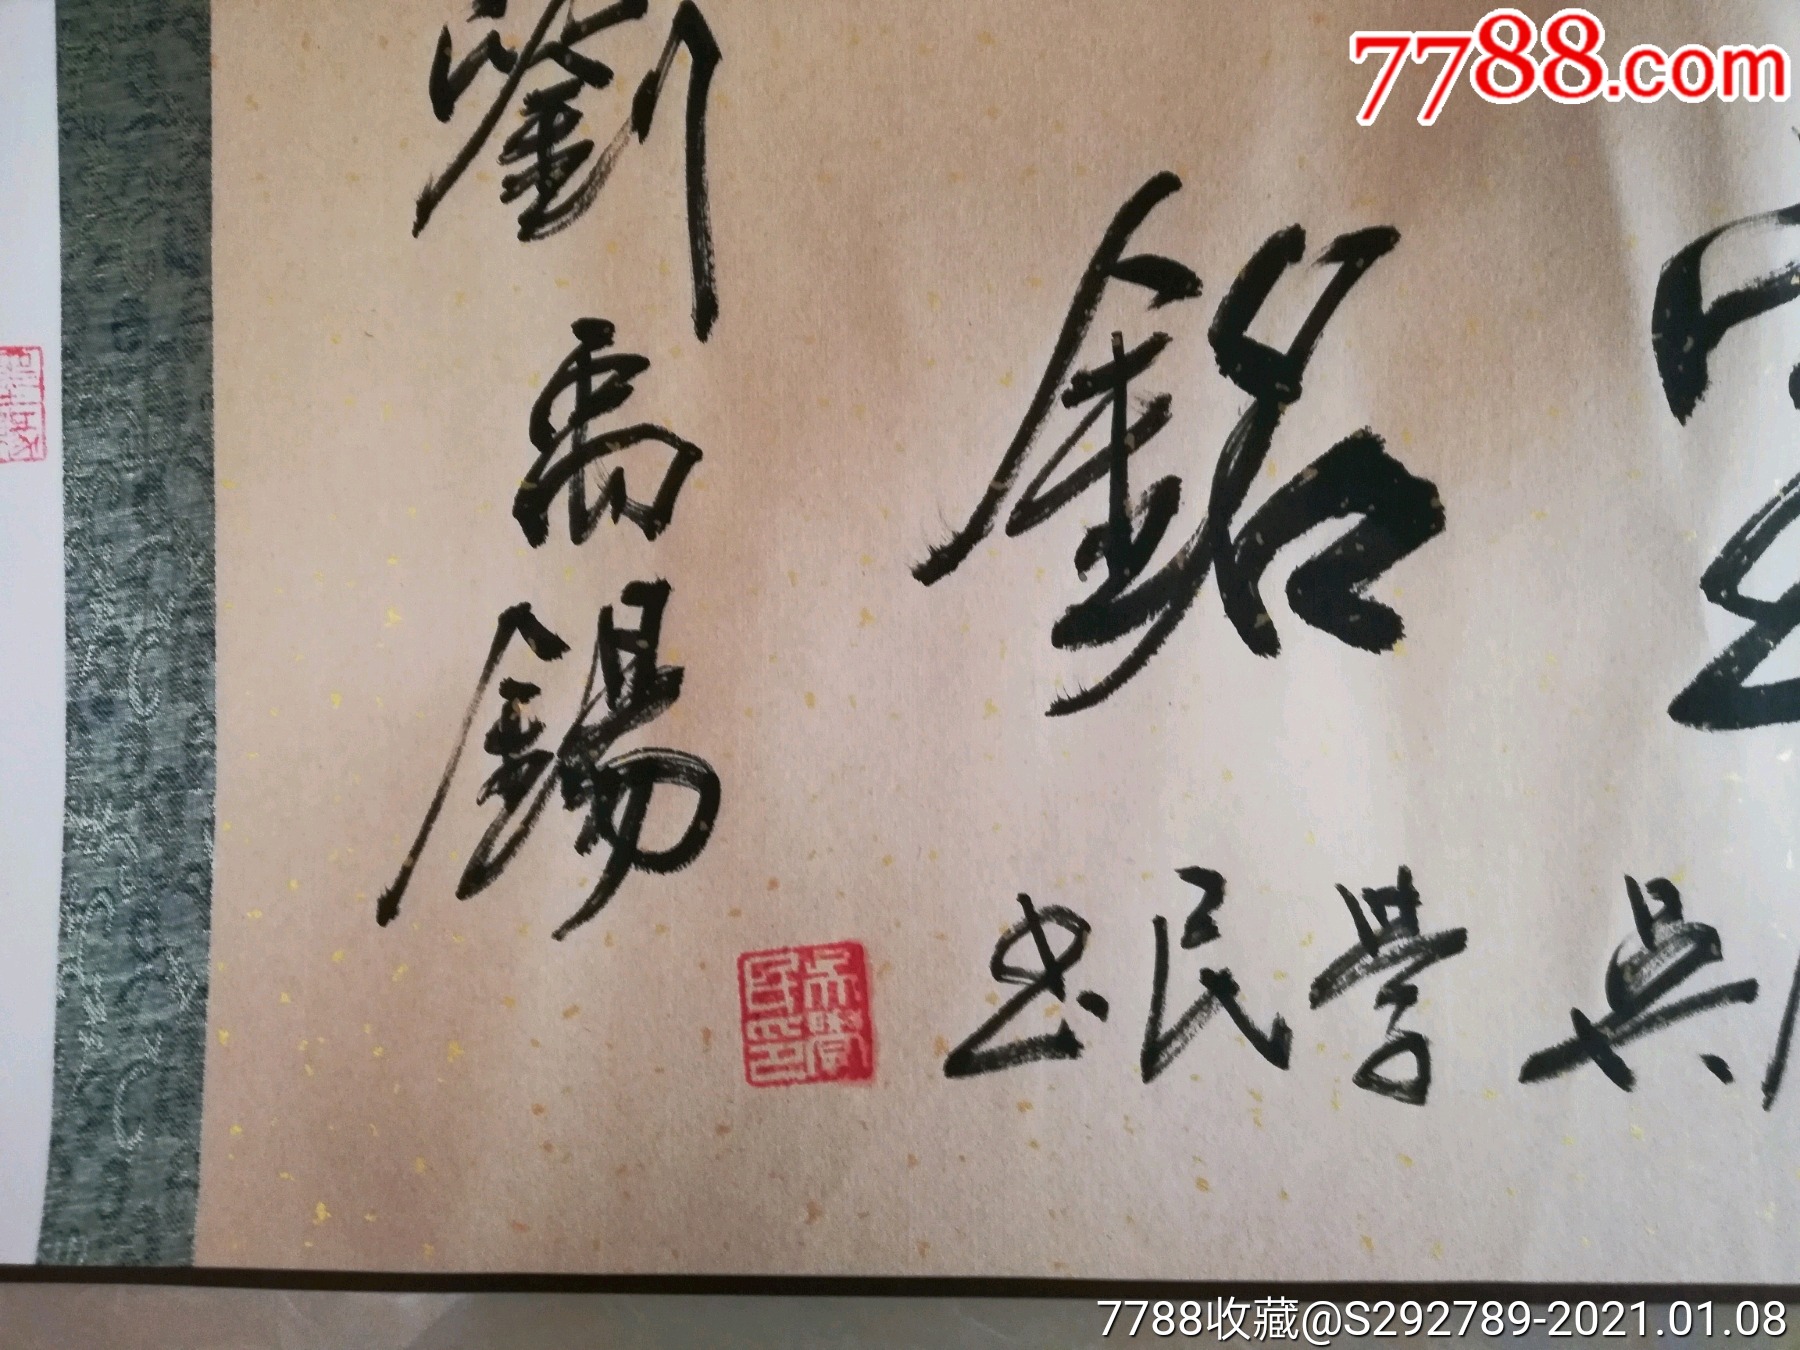 7788.com
室
銘
劉禹錫
吳學民書
吳學民印
7788收藏@S292789-2021.01.08